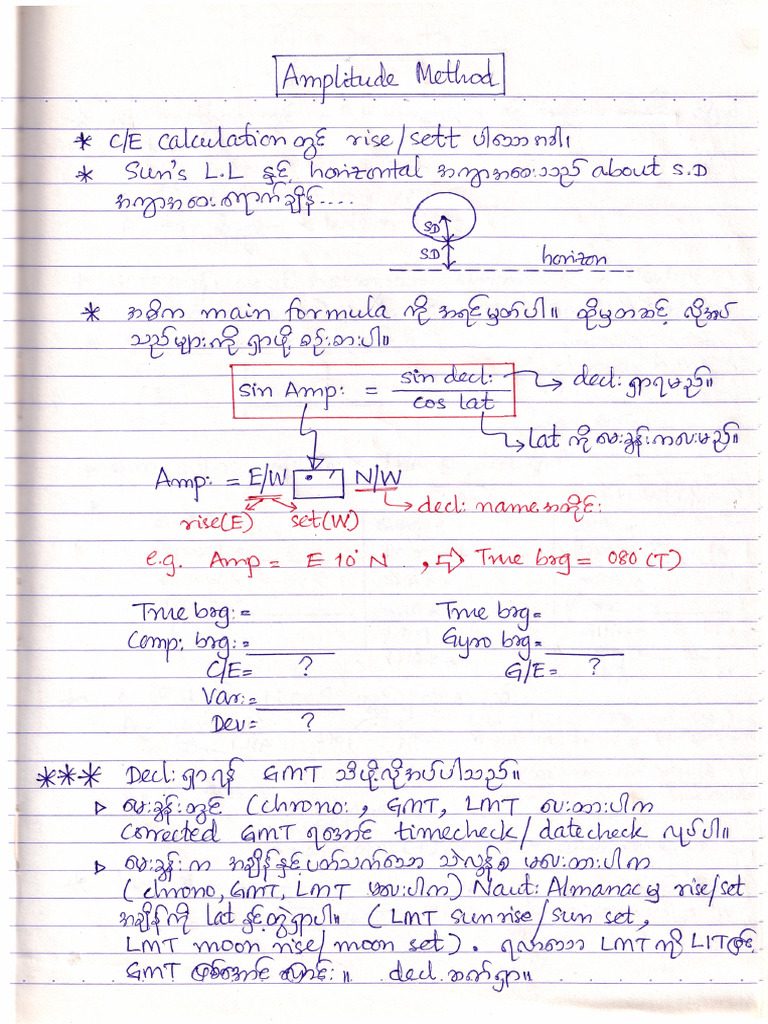 Amplitude Method
* C/E calculation တွင် rise/sett ပါသော စာဒါ၊
* Sun's L.L နှင့် horizontal အကွာအဝေးသည် about S.D
အကွာအဝေးရောက်ချိန်....
SD
SD
horizon
* အဓိက main formula ကို အရင်မှတ်ပါ။ ထိုမှတဆင့် လိုအပ်
သည်များကို ရှာဖို့ စဉ်းစားပါ။
sin Amp: = sin decl: / cos lat
decl: ရှာရမည်။
lat ကို မေးခွန်းကပေးမည်။
Amp: = E/W N/W
rise(E) set(W) decl: name အတိုင်း
e.g. Amp = E 10° N , ⇨ True brg = 080°(T)
True brg: = True brg=
Comp: brg: = Gyro brg=
C/E= ? G/E= ?
Var: =
Dev= ?
*** Decl: ရှာရန် GMT သိဖို့လိုအပ်ပါသည်။
▷ မေးခွန်းတွင် (chrono: , GMT, LMT ပေးထားပါက
corrected GMT ရအောင် timecheck/datecheck လုပ်ပါ။
▷ မေးခွန်းက အချိန်နှင့်ပတ်သက်သော သဲလွန်စ မပေးထားပါက
(chrono, GMT, LMT မပေးပါက) Naut: Almanac မှ rise/set
အချိန်ကို lat နှင့်တွဲရှာပါ။ (LMT sunrise/sun set,
LMT moon rise/moon set). ရလာသော LMT ကို LITဖြင့်
GMT ဖြစ်အောင် ပြောင်း။ decl. ဆက်ရှာ။